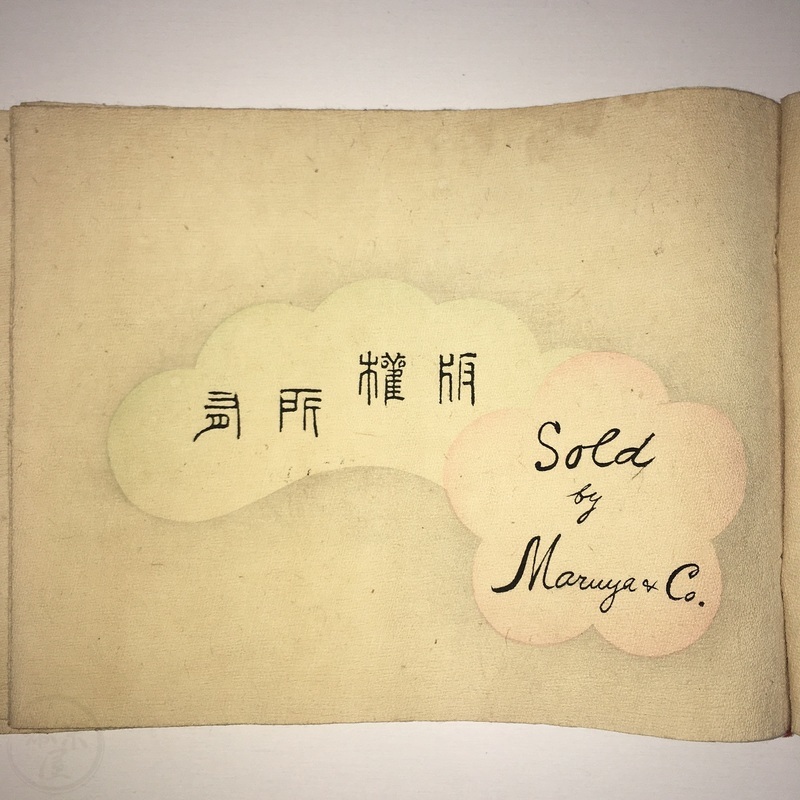 版權所有
Sold
by
Maruya & Co.